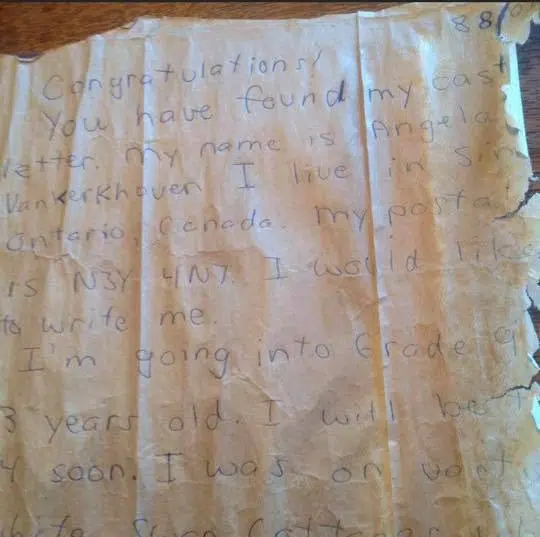 88/0
Congratulations!
You have found my cast
letter. My name is Angela
Vankerkhoven I live in Sim
Ontario, Canada. My posta
is N3Y 4N7. I would like
to write me.
I'm going into Grade 9
3 years old. I will be
4 soon. I was on